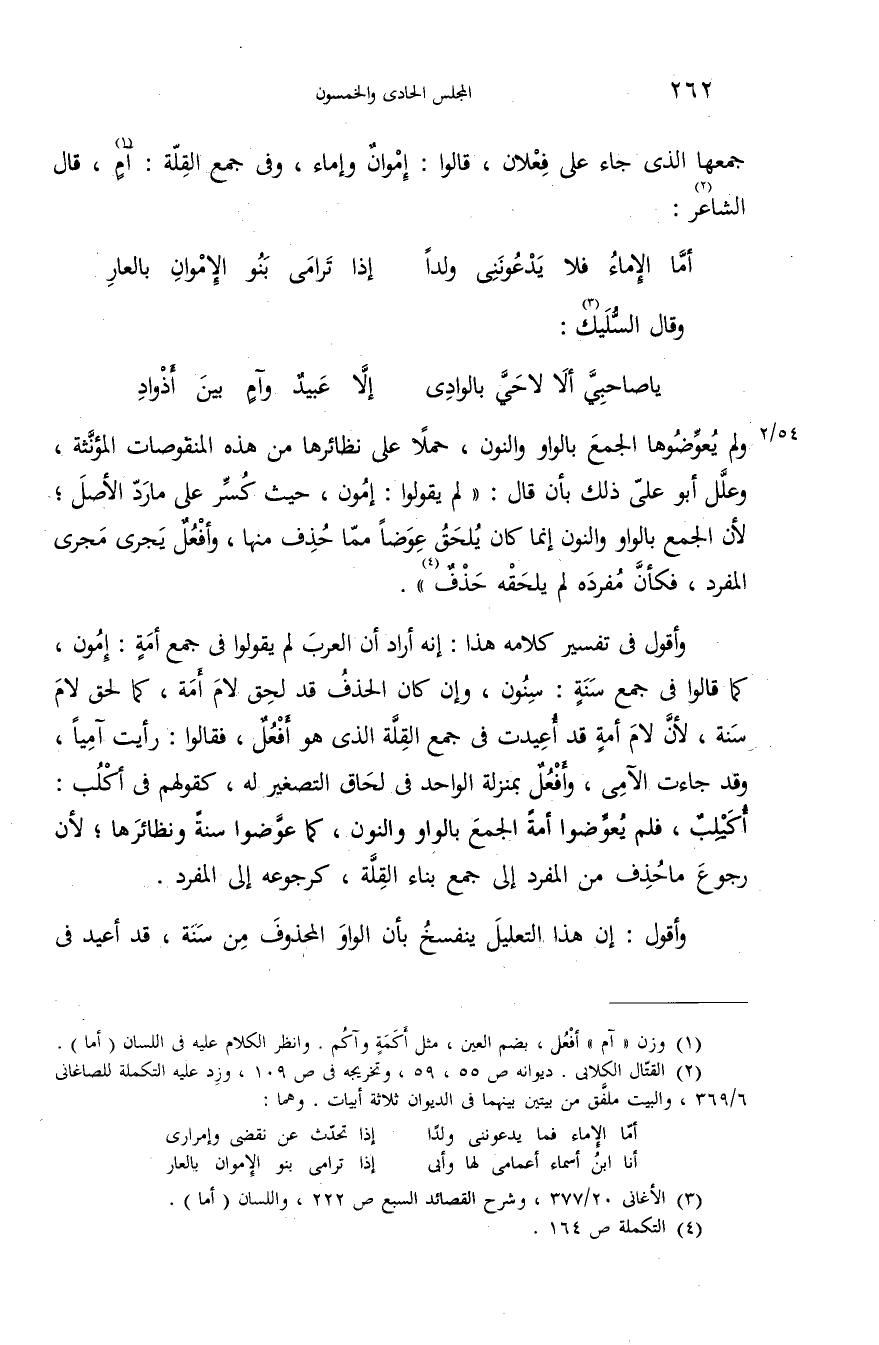 ٢٦٢ المجلس الحادى والخمسون
جمعها الذى جاء على فِعْلان ، قالوا : إِمْوانٌ وإماء ، وفى جمع القِلّة : آمٍ(١) ، قال
الشاعر(٢) :
أمَّا الإماءُ فلا يَدْعُونَنِى ولداً إذا تَرامَى بَنُو الإِمْوانِ بالعارِ
وقال السُّلَيك(٣) :
ياصاحبِيَّ ألَا لاحَيَّ بالوادِى إلَّا عَبيدٌ وآمٍ بينَ أَذْوادِ
٢/٥٤ ولم يُعوِّضُوها الجمعَ بالواو والنون ، حملًا على نظائرها من هذه المنقوصات المؤنَّثة ،
وعلَّل أبو علىّ ذلك بأن قال : « لم يقولوا : إمُون ، حيث كُسِّر على مارَدّ الأصلَ ؛
لأن الجمع بالواو والنون إنما كان يُلحَقُ عِوَضاً ممّا حُذِف منها ، وأفْعُلٌ يَجرى مَجرى
المفرد ، فكأنَّ مُفردَه لم يلحَقْه حَذْفٌ(٤) » .
وأقول فى تفسير كلامه هذا : إنه أراد أن العربَ لم يقولوا فى جمع أمَةٍ : إمُون ،
كما قالوا فى جمع سَنَةٍ : سِنُون ، وإن كان الحذفُ قد لحِق لامَ أَمَة ، كما لحق لامَ
سَنة ، لأنَّ لامَ أمةٍ قد أُعِيدت فى جمع القِلَّة الذى هو أَفْعُلٌ ، فقالوا : رأيت آمِياً ،
وقد جاءت الآمِى ، وأَفْعُلٌ بمنزلة الواحد فى لحَاق التصغير له ، كقولهم فى أكْلُب :
أُكَيْلِبٌ ، فلم يُعوِّضوا أمةً الجمعَ بالواو والنون ، كما عوَّضوا سنةً ونظائرَها ؛ لأن
رجوعَ ماحُذِف من المفرد إلى جمع بناء القِلَّة ، كرجوعه إلى المفرد .
وأقول : إن هذا التعليلَ ينفسخُ بأن الواوَ المحذوفَ مِن سَنَة ، قد أعيد فى
(١) وزن « آم » أفْعُل ، بضم العين ، مثل أَكَمَةٍ وآكُم . وانظر الكلام عليه فى اللسان ( أما ) .
(٢) القتّال الكلابى . ديوانه ص ٥٥ ، ٥٩ ، وتخريجه فى ص ١٠٩ ، وزِد عليه التكملة للصاغانى
٣٦٩/٦ ، والبيت ملفَّق من بيتين بينهما فى الديوان ثلاثة أبيات . وهما :
أمّا الإماء فما يدعوننى ولدًا إذا تحدّث عن نقضى وإمرارى
أنا ابنُ أسماء أعمامى لها وأبى إذا ترامى بنو الإموان بالعار
(٣) الأغانى ٣٧٧/٢٠ ، وشرح القصائد السبع ص ٢٢٢ ، واللسان ( أما ) .
(٤) التكملة ص ١٦٤ .